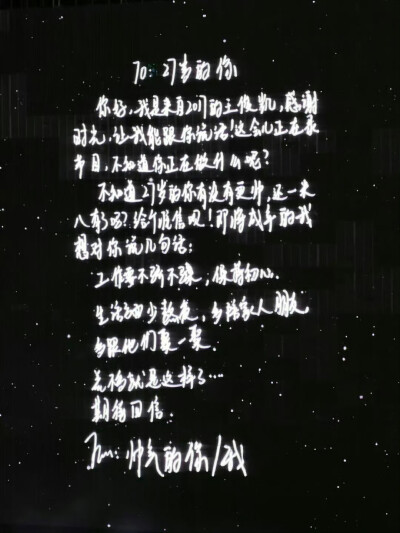 To: 27岁的你
你好,我是来自2017的王俊凯,感谢
时光,让我能跟你说话!这会儿正在录
节目,不知道你正在做什么呢?
不知道27岁的你有没有更帅,还一米
八有了吗?给个准信呗!即将成年的我
想对你说几句话:
工作要不骄不躁,保持初心.
生活少熬夜,多陪家人朋友
多跟他们聚一聚.
差不多就是这样了…
期待回信.
From: 帅气的你/我